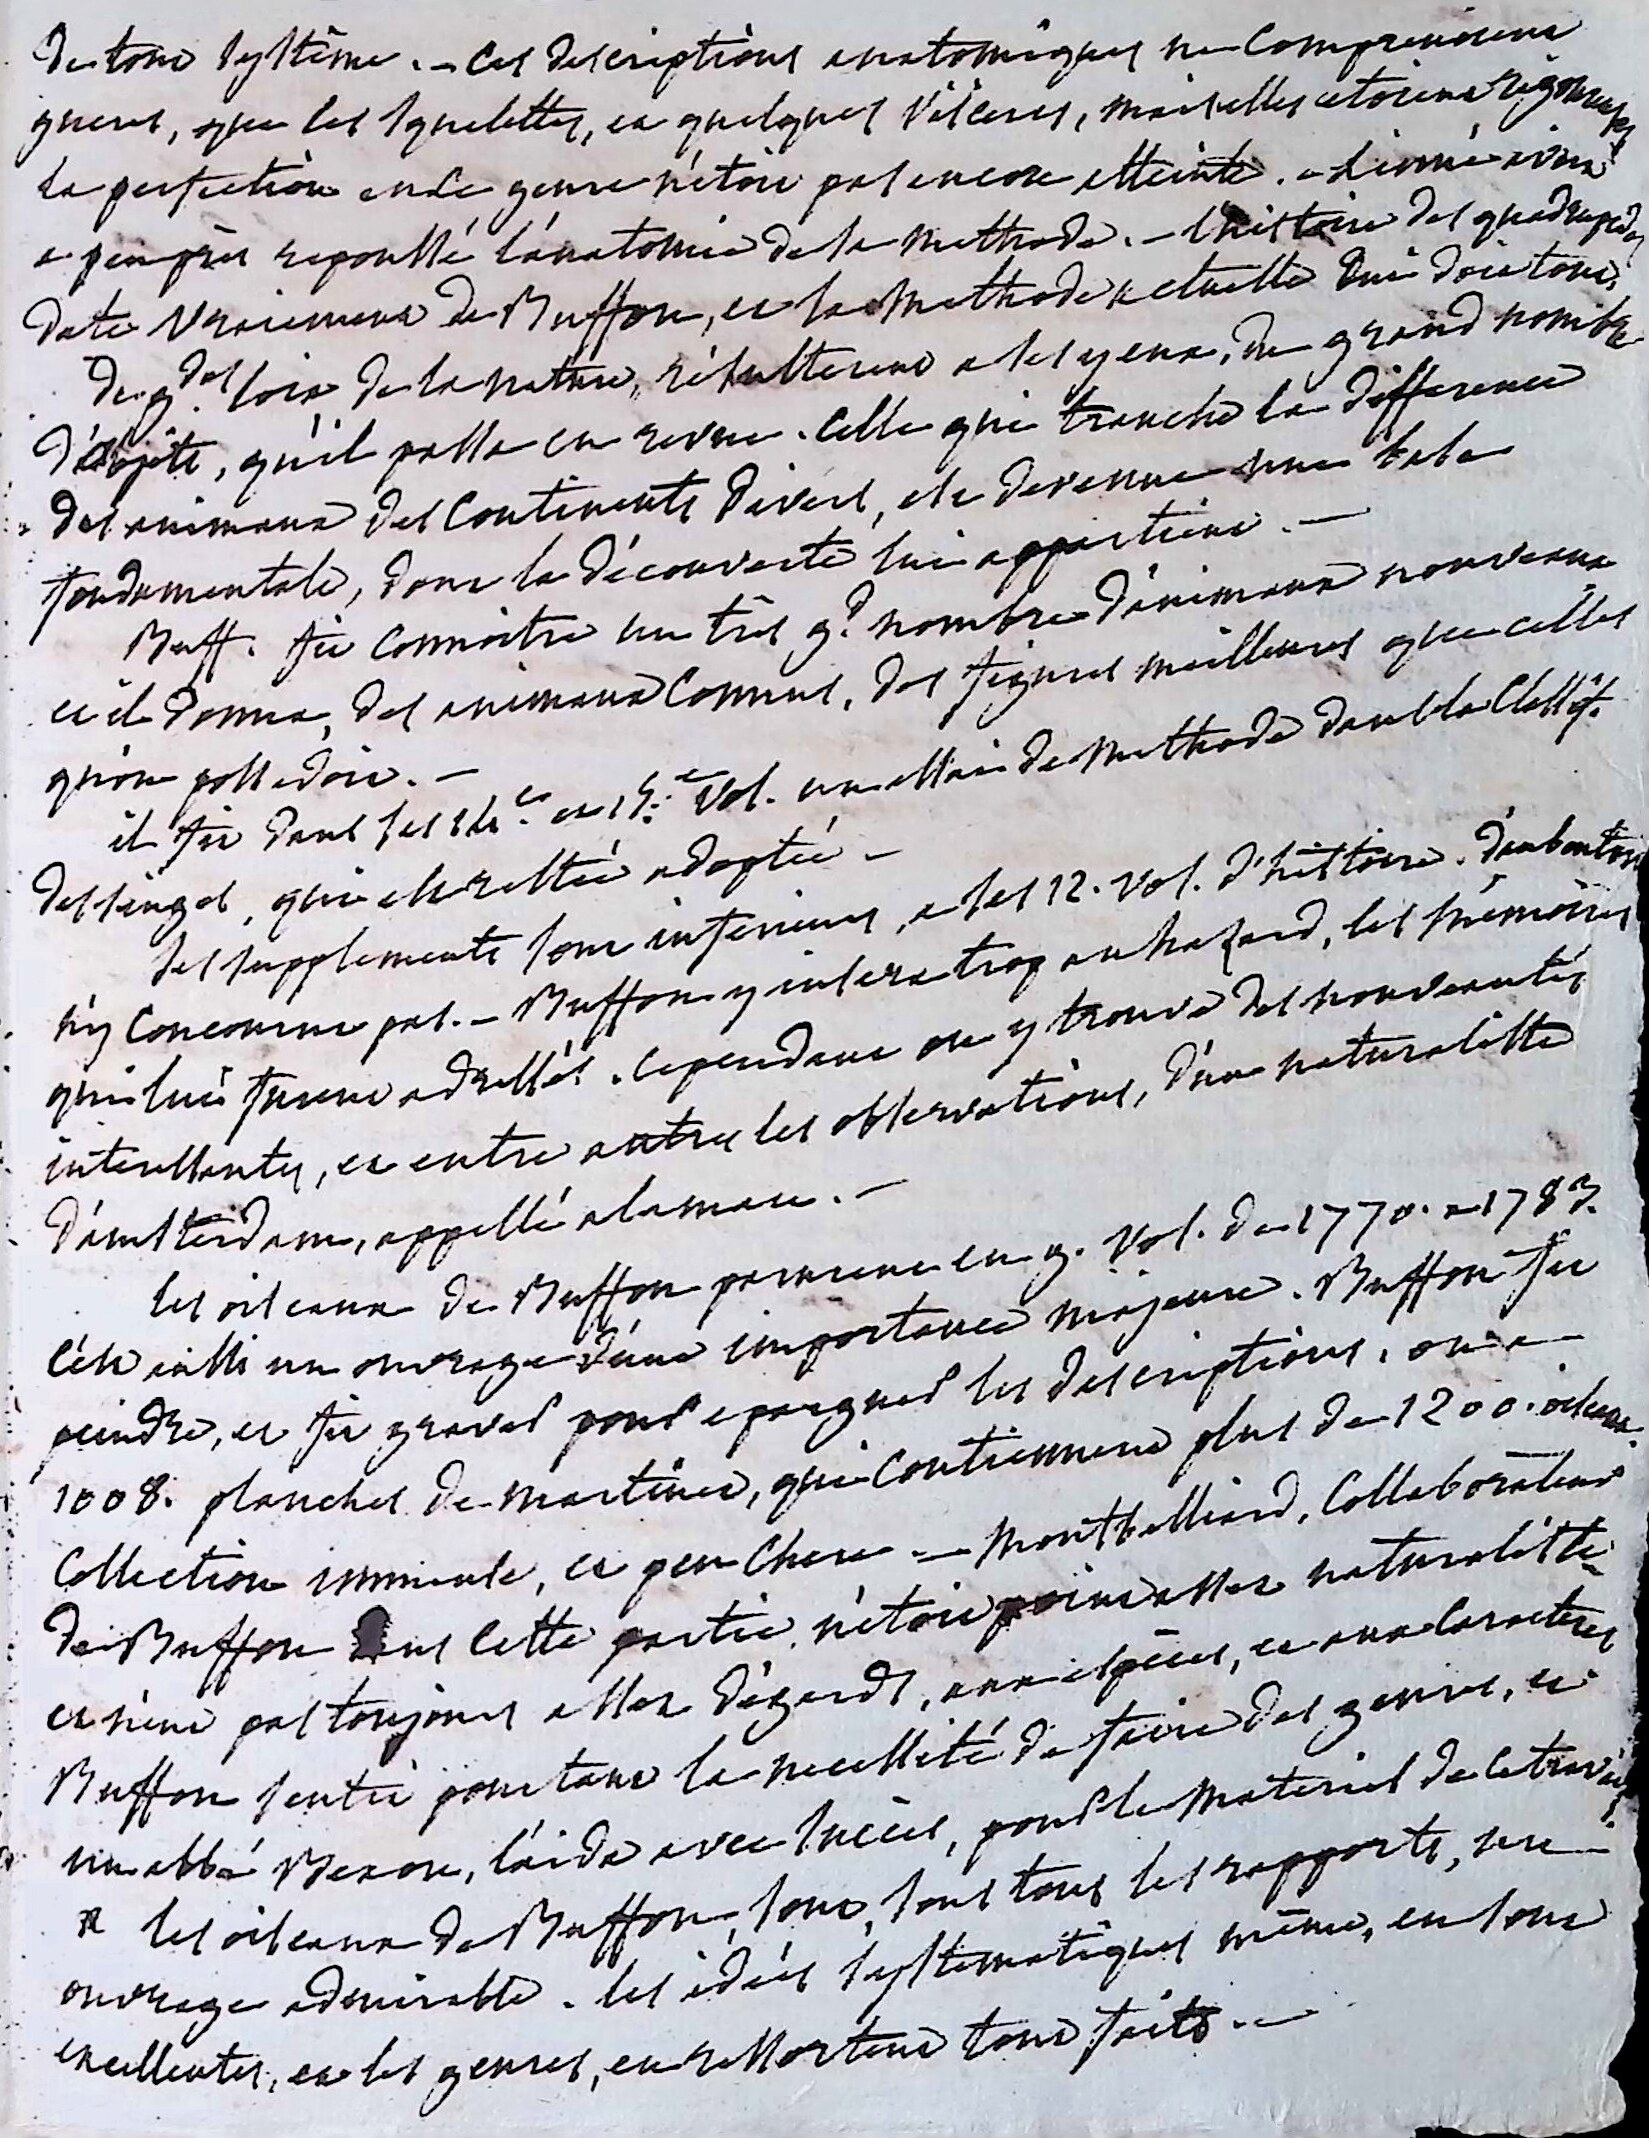 de tout systême. – Ces descriptions anatomiques ne comprenoient
gueres, que les squelettes, et quelques visceres, mais elles etoient rigoureuses
la perfection en ce genre n'étoit pas encore atteinte. – Linné avoit
a peu près repoussé l'anatomie de la methode. – L'histoire des quadrupedes
date vraiement de Buffon, et la methode actuelle lui doit tout.
de gdes loix de la nature, résulterent a ses yeux, du grand nombre
d'objets, qu'il passa en revue. Celle qui tranche la difference
des animaux des Continents divers, est devenue une base
fondamentale, dont la découverte lui appartient. –
Buff. fit connoitre un très gd. nombre d'animaux nouveaux
et il donna, des animaux connus, des figures meilleures que celles
qu'on possedoit. –
il fit dans ses 14e. et 15e. vol. un essai de methode dans la Classif.
des singes, qui est restée adoptée –
les supplements sont inferieurs, a ses 12. vol. d'histoire. d'aubenton
n'y concourut pas. – Buffon y insera trop au hazard, les mémoires
qui lui furent adressés. cependant on y trouve des nouveautés
interessantes, et entre autres les observations, d'un naturaliste
d'amsterdam, appellé alaman. –
les oiseaux de Buffon parurent en 9. vol. de 1770. a 1783.
c'est aussi un ouvrage d'une importance majeure. Buffon fit
peindre, et fit graver pour epargner les descriptions, on a
1008. planches de martinet, qui contiennent plus de 1200. oiseaux.
Collection immense, et peu chere – Montbelliard, Collaborateur
de Buffon dans cette partie, n'étoit point assez naturaliste
et n'eut pas toujours assez d'égards, aux espèces, et aux caracteres
Buffon sentit pourtant la necessité de faire des genres, et
un abbé Bexon, l'aida avec succès, pour le materiel de ce travail.
les oiseaux de Buffon, sont, sous tous les rapports, un
ouvrage admirable. les idées systematiques même, en sont
excellentes, et les genres, en ressortent tout faits. –